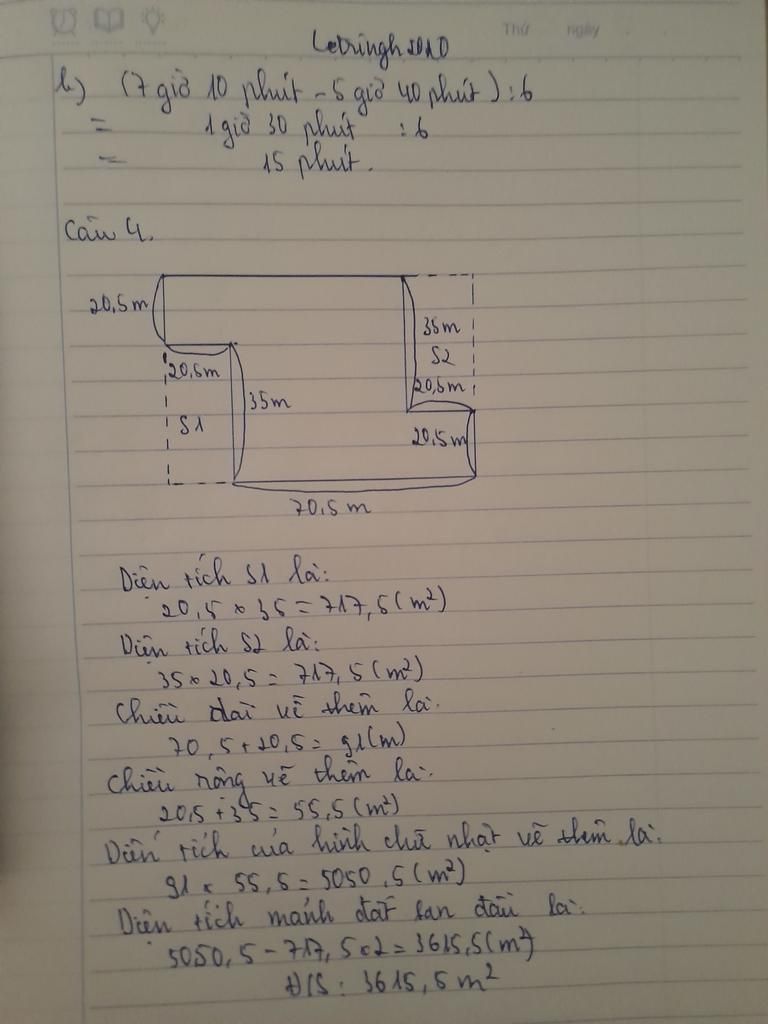 Thứ ngày
Letringh2010
b) (7 giờ 10 phút - 5 giờ 40 phút) : 6
= 1 giờ 30 phút : 6
= 15 phút.
Câu 4.
20,5m
35m
S2
20,5m
20,5m
35m
S1
20,5m
70,5m
Diện tích S1 là:
20,5 × 35 = 717,5 (m²)
Diện tích S2 là:
35 × 20,5 = 717,5 (m²)
Chiều dài vẽ thêm là:
70,5 + 20,5 = 91(m)
Chiều rộng vẽ thêm là:
20,5 + 35 = 55,5 (m²)
Diện tích của hình chữ nhật vẽ thêm là:
91 × 55,5 = 5050,5 (m²)
Diện tích mảnh đất ban đầu là:
5050,5 - 717,5 × 2 = 3615,5 (m²)
Đ/S : 3615,5 m²